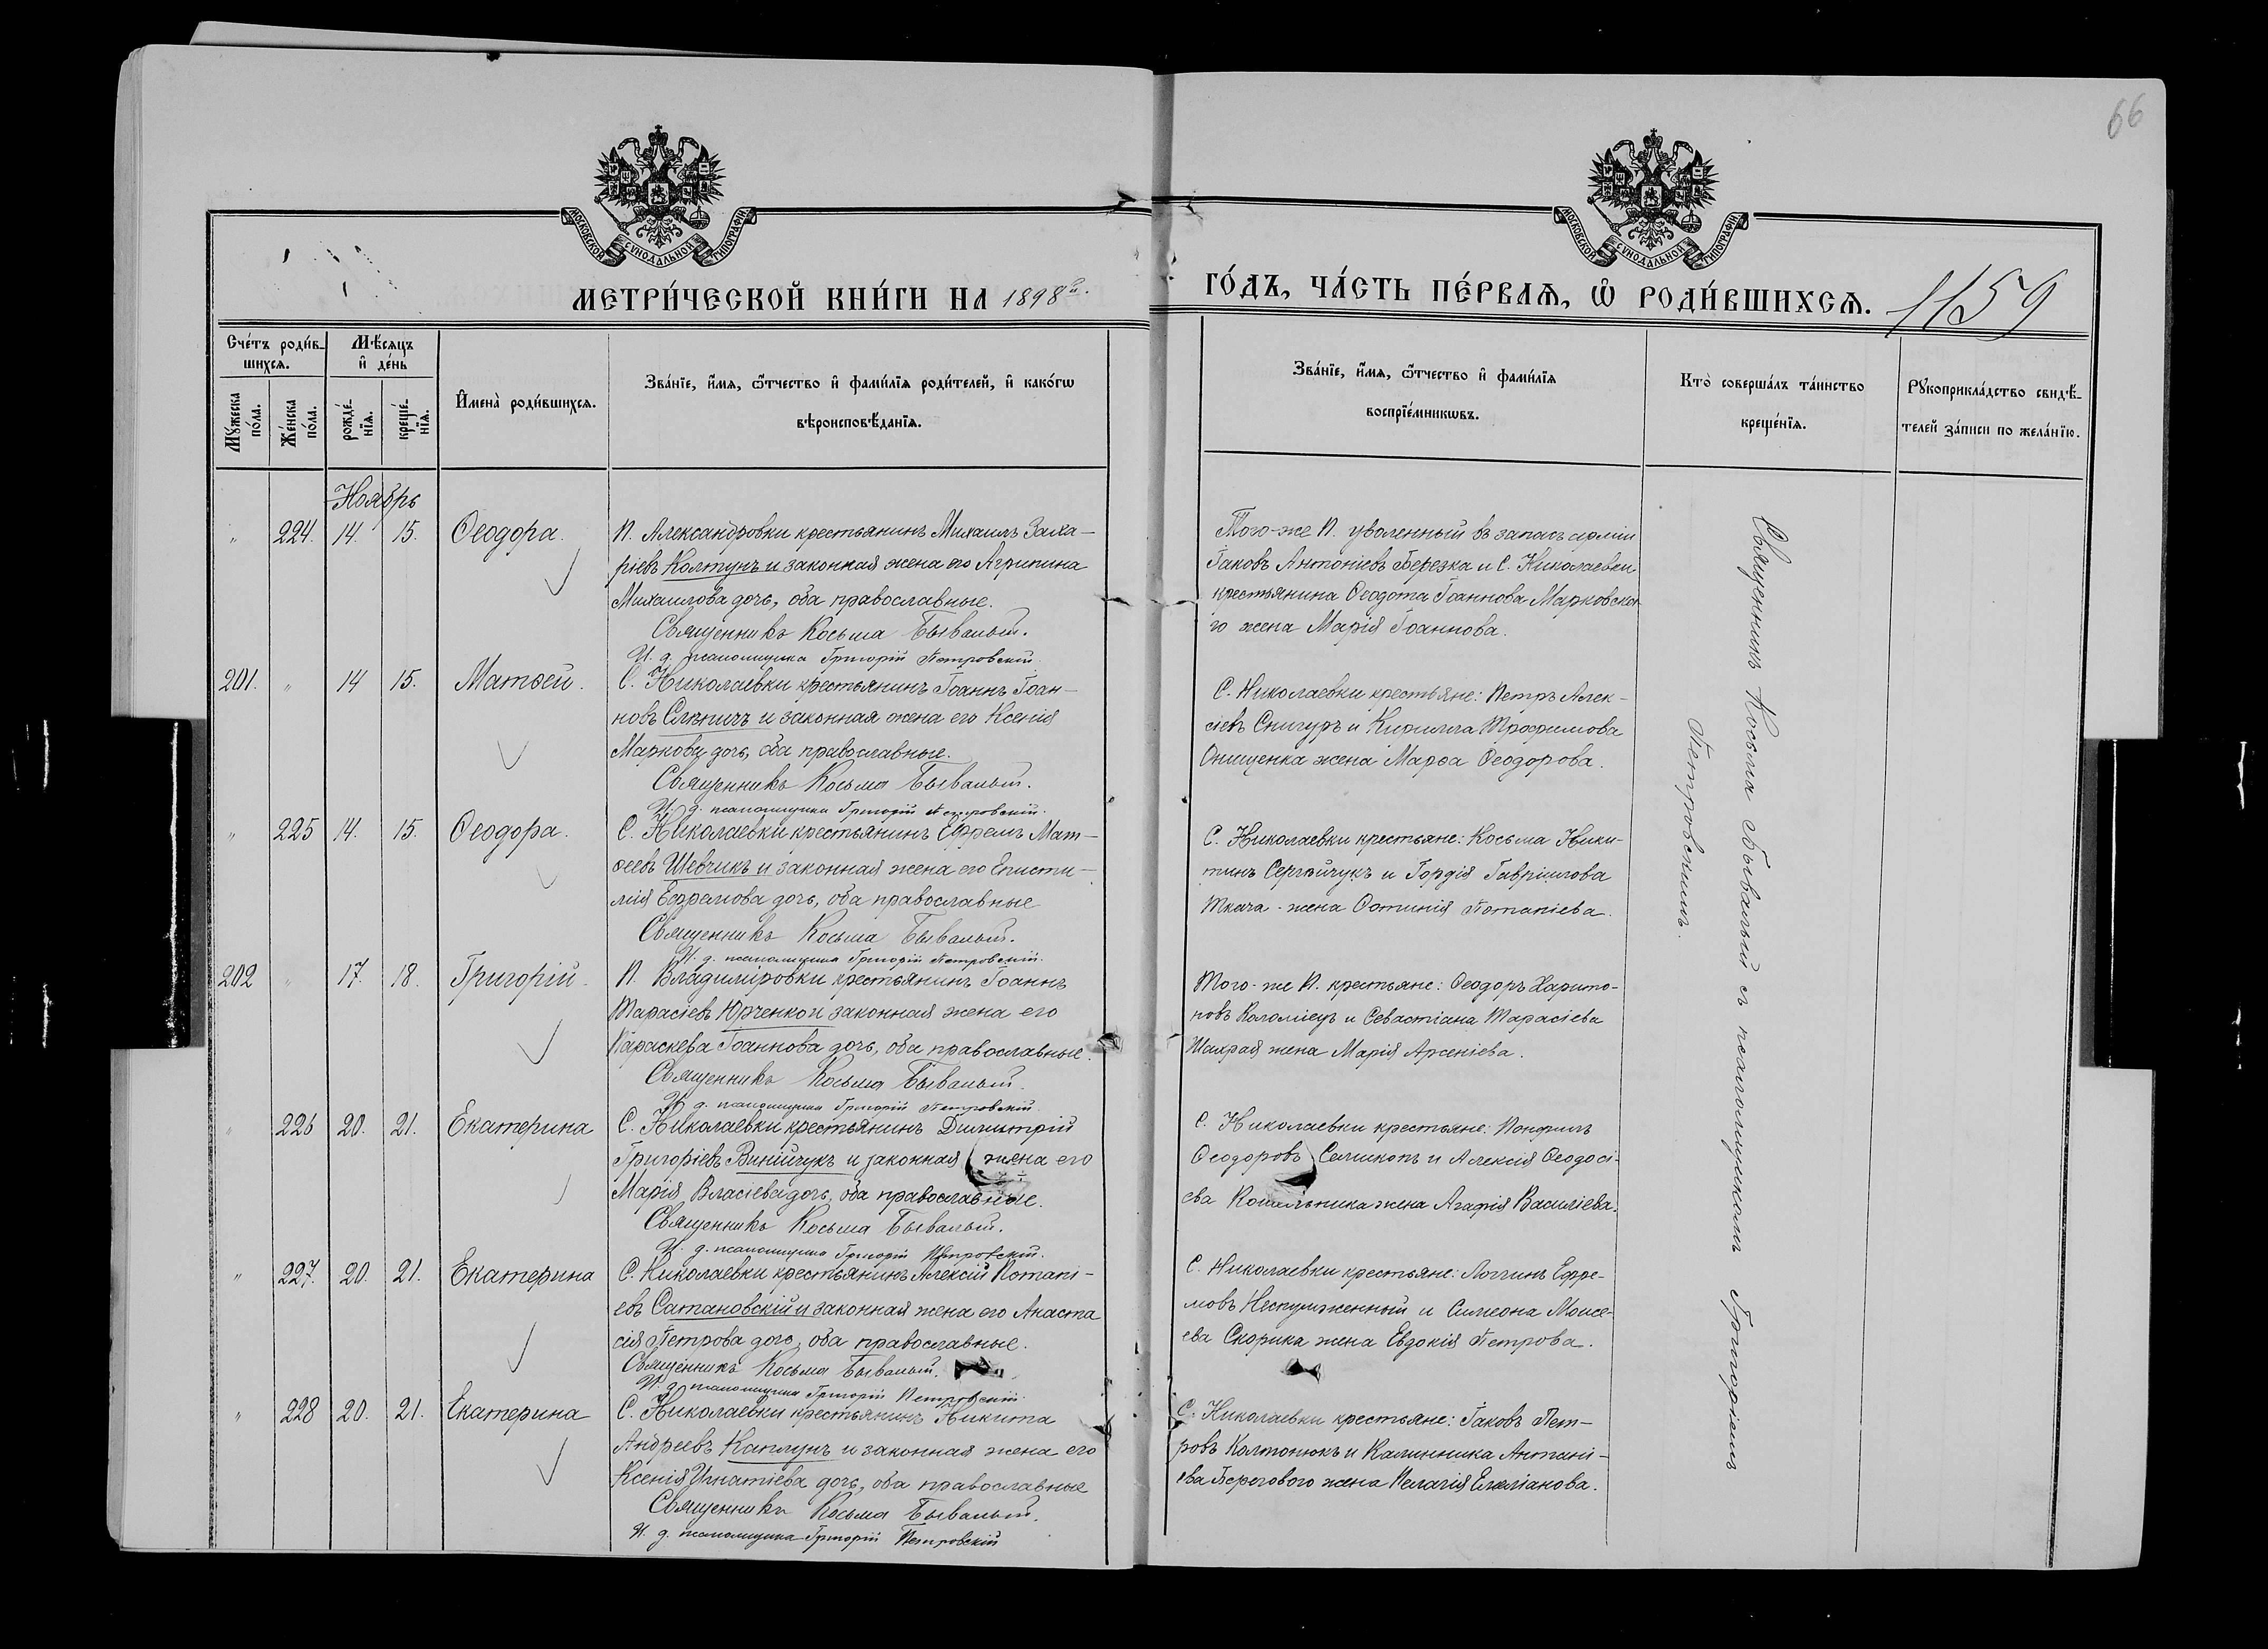 66
МОСКОВСКОЙ СѴНОДАЛЬНОЙ ТИПОГРАФІИ
МОСКОВСКОЙ СѴНОДАЛЬНОЙ ТИПОГРАФІИ
МЕТРИ́ЧЕСКОЙ КНИ́ГИ НА 1898й.
ГО́ДЪ, ЧА́СТЬ ПЕ́РВАѦ, Ѽ РОДИ́ВШИХСѦ. 1159
Сче́тъ роди́в-
шихсѧ.
Мѣ́сѧцъ
и҆ де́нь
Мꙋ́жеска
по́ла.
Же́нска
по́ла.
рожде́-
нїѧ.
креще́-
нїѧ.
И҆мена̀ роди́вшихсѧ.
Зва́нїе, и҆́мѧ, ѻ҆́тчество и҆ фами́лїѧ роди́телей, и҆ како́гѡ
вѣроисповѣ́данїѧ.
Зва́нїе, и҆́мѧ, ѻ҆́тчество и҆ фами́лїѧ
воспрїе́мникѡвъ.
Кто̀ соверша́лъ та́инство
креще́нїѧ.
Рꙋкоприкла́дство свидѣ́-
телей за́писи по жела́нїю.
Ноябрь
" 224. 14. 15. Ѳеодора.
П. Александровки крестьянинъ Михаилъ Заха-
ріевъ Колтунъ и законная жена его Агрипина
Михаилова дочь, оба православные.
Священникъ Косьма Бывалый.
И. д. псаломщика Григорій Петровскій.
Того-же П. уволенный въ запасъ арміи
Іаковъ Антоніевъ Березка и С. Николаевки
крестьянина Ѳеодота Іоаннова Марковска-
го жена Марія Іоаннова.
201. " 14 15. Матѳей.
С. Николаевки крестьянинъ Іоаннъ Іоан-
новъ Слѣпичъ и законная жена его Ксенія
Маркова дочь, оба православные.
Священникъ Косьма Бывалый.
И. д. псаломщика Григорій Петровскій.
С. Николаевки крестьяне: Петръ Алек-
сіевъ Снигуръ и Кирилла Трофимова
Онищенка жена Марѳа Ѳеодорова.
" 225 14. 15. Ѳеодора.
С. Николаевки крестьянинъ Ефремъ Мат-
ѳеевъ Шевчикъ и законная жена его Еписти-
мія Ефремова дочь, оба православные
Священникъ Косьма Бывалый.
И. д. псаломщика Григорій Петровскій.
С. Николаевки крестьяне: Косьма Ники-
тинъ Сергійчукъ и Гордія Гавріилова
Ткача - жена Фотинія Потапіева.
202 " 17. 18. Григорій.
П. Владиміровки крестьянинъ Іоаннъ
Тарасіевъ Юрченко и законная жена его
Параскева Іоаннова дочь, оба православные.
Священникъ Косьма Бывалый.
И. д. псаломщика Григорій Петровскій.
Того-же П. крестьяне: Ѳеодоръ Харито-
новъ Коломіецъ и Севастіана Тарасіева
Шахрая жена Марія Арсеніева.
" 226 20. 21. Екатерина
С. Николаевки крестьянинъ Димитрій
Григоріевъ Винійчукъ и законная жена его
Марія Власіева дочь, оба православные.
Священникъ Косьма Бывалый.
И. д. псаломщика Григорій Петровскій.
С. Николаевки крестьяне:
Ѳеодоровъ и Алексія Ѳеодосі-
ева жена Агафія Василіева.
" 227. 20. 21. Екатерина
С. Николаевки крестьянинъ Алексій Потапі-
евъ Сатановскій и законная жена его Анаста
сія Петрова дочь, оба православные.
Священникъ Косьма Бывалый.
И. д. псаломщика Григорій Петровскій
С. Николаевки крестьяне: Логгинъ Ефре-
мовъ и Симеона Моисе-
ева Скорика жена Евдокія Петрова.
" 228 20. 21. Екатерина
С. Николаевки крестьянинъ Никита
Андреевъ Каплунъ и законная жена его
Ксенія Игнатіева дочь, оба православные
Священникъ Косьма Бывалый.
И. д. псаломщика Григорій Петровскій
С. Николаевки крестьяне: Іаковъ Пет-
ровъ Колтонюкъ и Калинника Антоні-
ева Берегового жена Пелагія Емеліанова.
Священникъ Косьма Бывалый съ псаломщикомъ Григоріемъ
Петровскимъ.